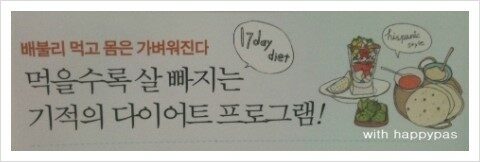 배불리 먹고 몸은 가벼워진다
17day
diet
먹을수록 살 빠지는
기적의 다이어트 프로그램!
hispanic
style
with happypas